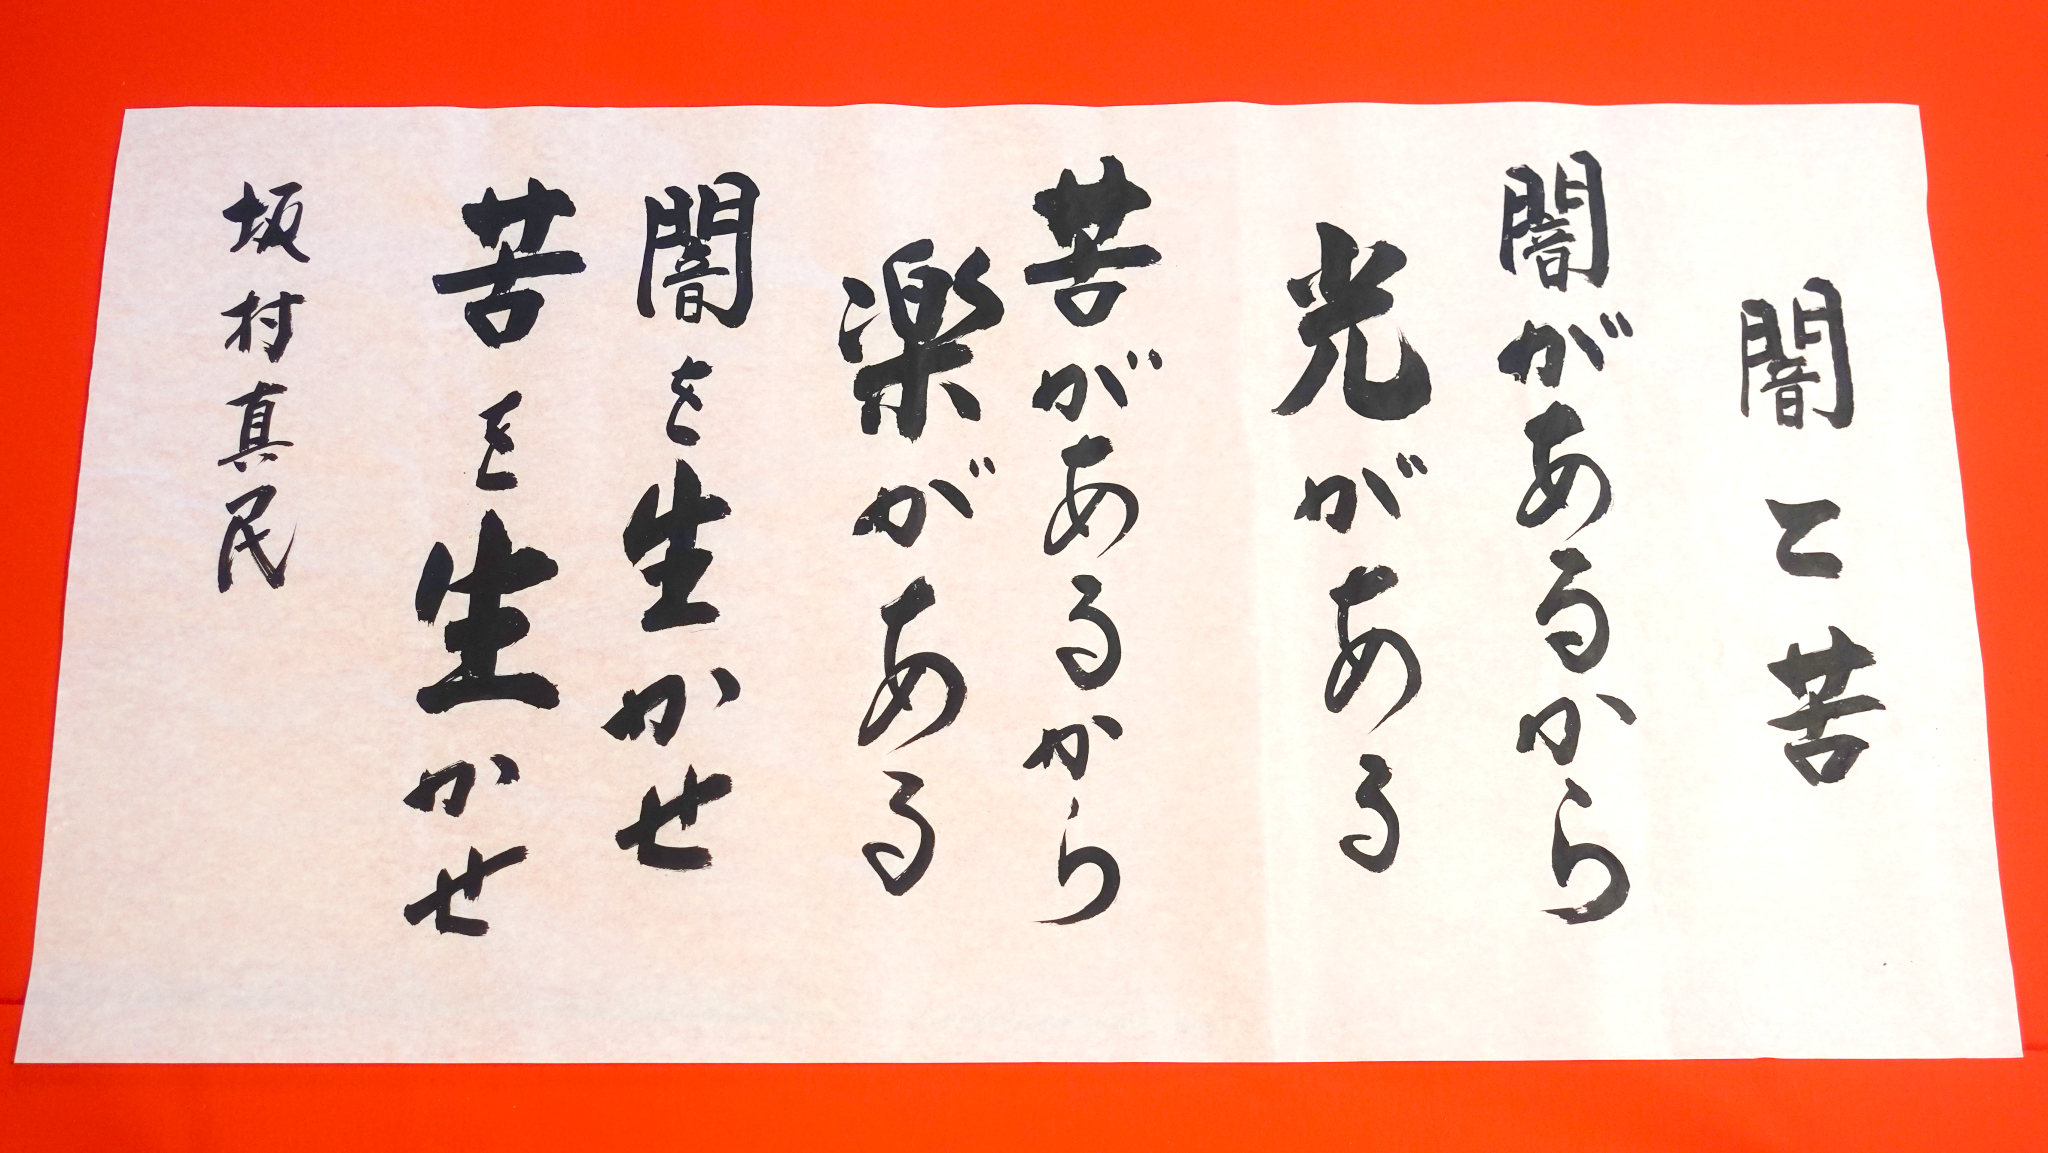 闇と苦
闇があるから
光がある
苦があるから
楽がある
闇を生かせ
苦を生かせ
坂村真民